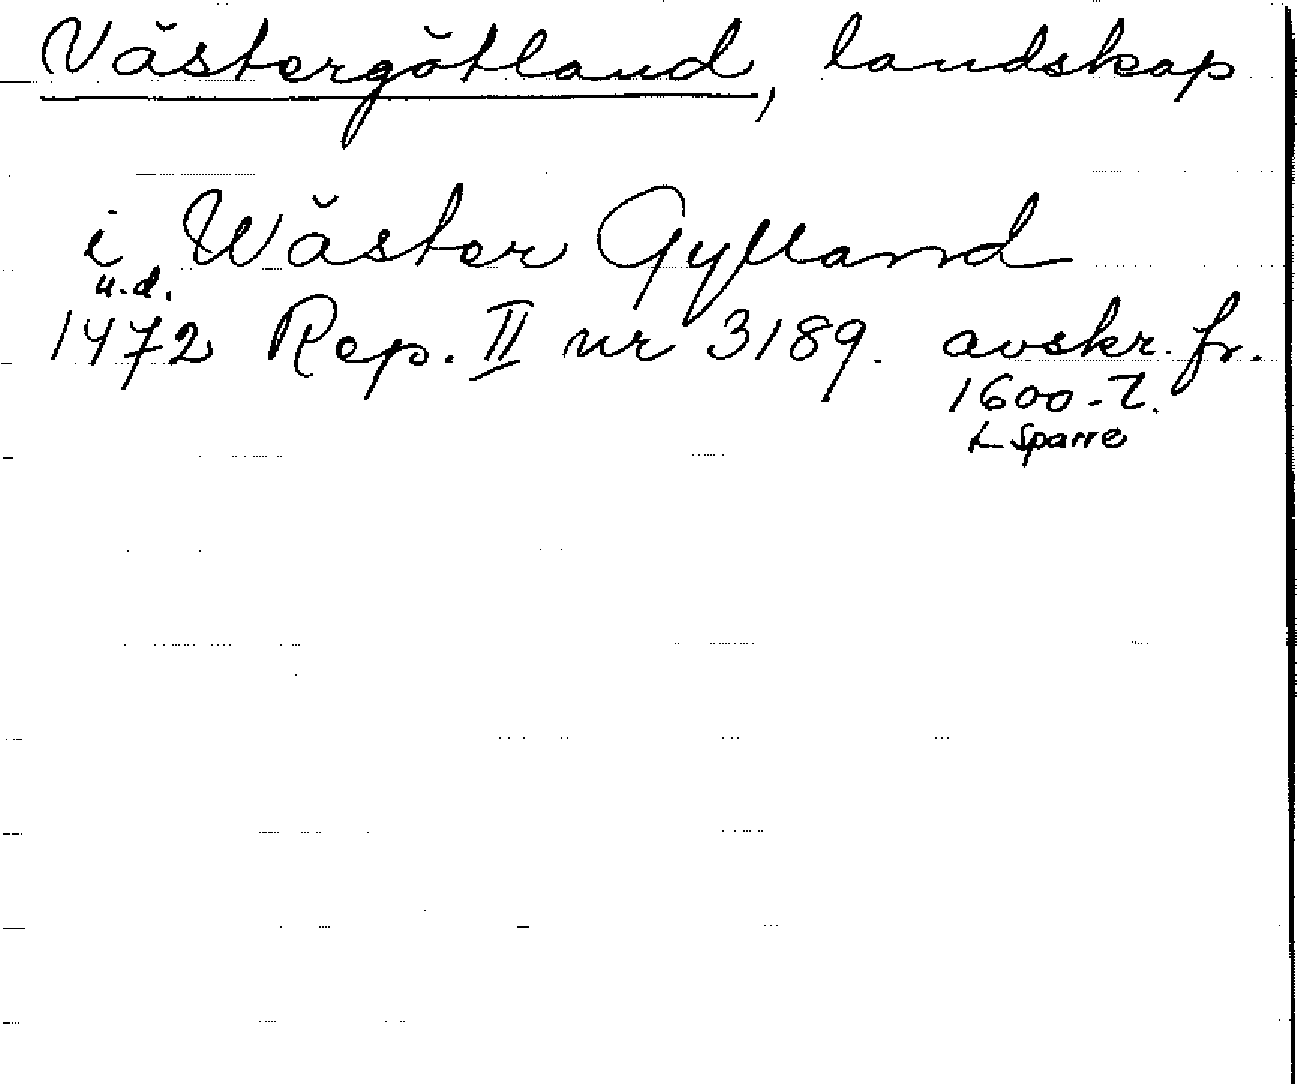 Västergötland, landskap
i Wäster Gylland
u.d.
1472 Rep. II nr 3189. avskr. fr.
1600-t.
L Sparre